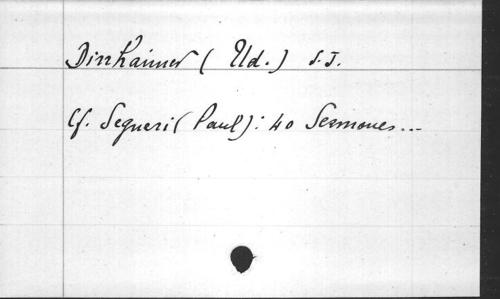 Dirrhaimer (Uld.) S.J.
Cf. Segneri (Paul): 40 Sermones...